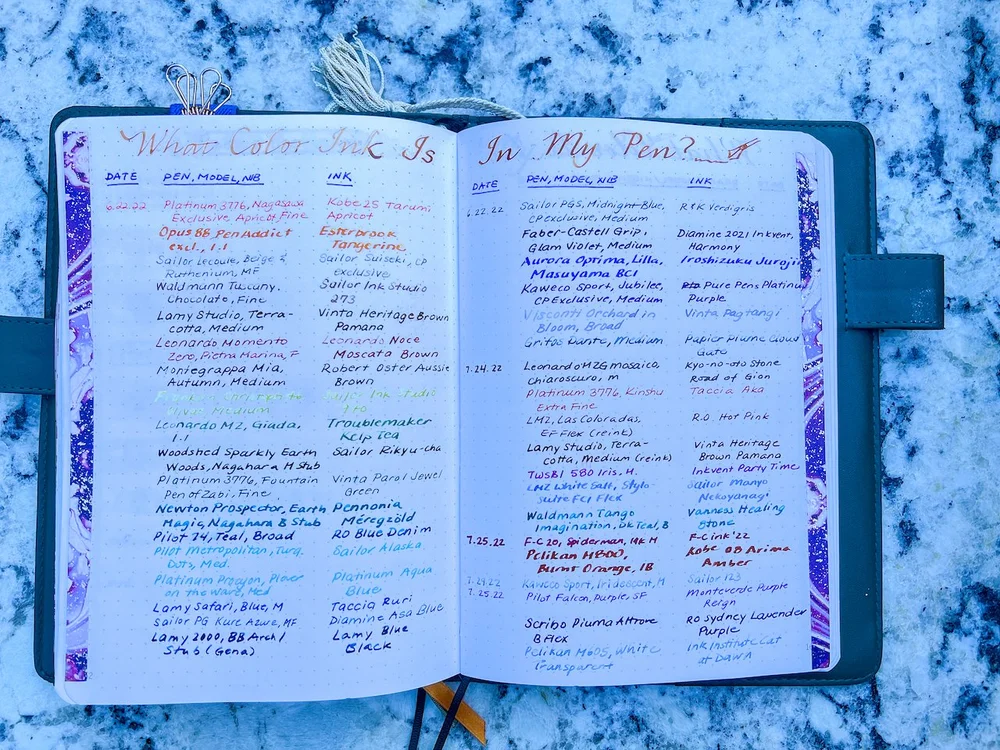 What Color Ink Is
DATE PEN, MODEL, NIB INK
6.22.22 Platinum 3776, Nagasawa Kobe 25 Tarumi
Exclusive Apricot, Fine Apricot
Opus 88 Pen Addict Esterbrook
excl., 1.1 Tangerine
Sailor Lecoule, Beige & Sailor Suiseki, CP
Ruthenium, MF exclusive
Waldmann Tuscany, Sailor Ink Studio
Chocolate, Fine 273
Lamy Studio, Terra- Vinta Heritage Brown
cotta, Medium Pamana
Leonardo Momento Leonardo Noce
Zero, Pietra Marina, F Moscata Brown
Montegrappa Mia, Robert Oster Aussie
Autumn, Medium Brown
Ink Studio
Medium
Leonardo MZ, Giada, Troublemaker
1.1 Kelp Tea
Woodshed Sparkly Earth Sailor Rikyu-cha
Woods, Nagahara M Stub
Platinum 3776, Fountain Vinta Parol Jewel
Pen of Zabi, Fine Green
Newton Prospector, Earth Pennonia
Magic, Nagahara B Stub Méregzöld
Pilot 74, Teal, Broad RO Blue Denim
Pilot Metropolitan, Turq. Sailor Alaska
Dots, Med.
Platinum Procyon, Plover Platinum Aqua
on the Wave, Med Blue
Lamy Safari, Blue, M Taccia Ruri
Sailor PG Kure Azure, MF Diamine Asa Blue
Lamy 2000, BB Arch/ Lamy Blue
Stub (Gena) Black
In My Pen?
DATE PEN, MODEL, NIB INK
6.22.22 Sailor PGS, Midnight Blue, R&K Verdigris
CP exclusive, Medium
Faber-Castell Grip, Diamine 2021 Inkvent,
Glam Violet, Medium Harmony
Aurora Optima, Lilla, Iroshizuku
Masuyama BCI
Kaweco Sport, Jubilee, Pure Pens Platinum
CP Exclusive, Medium Purple
Visconti Orchard in Vinta Pagtangi
Bloom, Broad
Gritos Dante, Medium Papier Plume Cloud
Gate
7.24.22 Leonardo MZG mosaico, Kyo-no-oto Stone
chiaroscuro, M Road of Gion
Platinum 3776, Kinshu Taccia Aka
Extra Fine
LMZ, Las Coloradas, R.O. Hot Pink
EF Flex (reink)
Lamy Studio, Terra- Vinta Heritage
cotta, Medium (reink) Brown Pamana
TWSBI 580 Iris, M. Inkvent Party Time
LMZ White Salt, Stylo- Sailor Manyo
suite FCI Flex Nekoyanagi
Waldmann Tango Vanness Healing
Imagination, Dk Teal, B Stone
7.25.22 F-C 20, Spiderman, MK M F-C ink '22
Pelikan M800, Kobe 08 Arima
Burnt Orange, IB Amber
7.24.22 Kaweco Sport, Iridescent, M Sailor 123
7.25.22 Pilot Falcon, Purple, SF Monteverde Purple
Reign
Scribo Piuma Altrove RO Sydney Lavender
B Flex Purple
Pelikan M605, White Ink Institute Cat
Transparent at Dawn